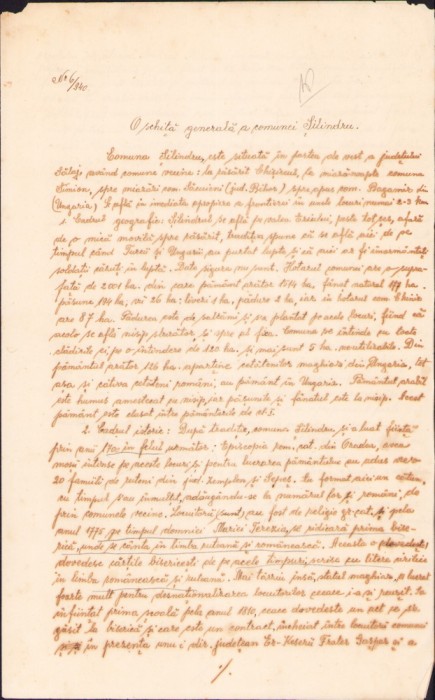 Nr 6/940
O schiță generală a comunei Șilindru.
Comuna Șilindru, este situată în partea de vest a județului
Sălaj având comune vecine: la răsărit Chișirid, la miazănoapte comuna
Simion, spre miazăzi com. Diosig (jud. Bihor), spre apus com. Bagamér din
(Ungaria.) E află în imediata apropiere a fruntarii în unele locuri numai 2-3 km
1. Cadrul geografic: Șilindrul se află pe valea Ierului, peste tot șes, afară
de o mică movilă spre răsărit, tradiția spune că se află aici de pe
timpul când Turcii și Ungurii au purtat lupte și că aici ar fi înmormântați
soldații căzuți în luptă. Date sigure nu sunt. Hotarul comunei are o supra-
față de 2001 ha. din care pământ arător 1614 ha. fânaț natural 179 ha.
pășune 134 ha. vii 26 ha. livezi 1 ha. pădure 2 ha, iar în hotarul com.
are 87 ha. Pădurea este de salcâmi și s'a plantat pe acele locuri, fiind că
acolo se află nisip sburător și spre a-l fixa. Comuna se întinde cu toate
clădirile ei pe o întindere de 120 ha. și mai sunt 5 ha. neutilizabile. Din
pământul arător 126 ha. aparține cetățenilor maghiari din Ungaria, tot
așa și câțiva cetățeni români, au pământ în Ungaria. Pământul arabil
este humus amestecat cu nisip, iar pășunile și fânațul este la nisip. Acest
pământ este clasat între pământurile de cl. I.
2. Cadrul istoric: După tradiție, comuna Șilindru și-a luat ființă
prin anii 170. în felul următor: Episcopia rom. cat. din Oradea, avea
moșii întinse pe aceste locuri și pentru lucrarea pământului au adus cam
20 familii de ruteni din jud. Zemplen și Sepeș. S'a format aici un cătun,
cu timpul s'au înmulțit, adăugându-se la numărul lor și români, de
prin comunele vecine. Locuitorii (sunt) au fost de religia gr. cat. și pela
anul 1775 pe timpul domniei Mariei Terezia, se ridicară prima bise-
rică, unde se cânta în limba ruteană și românească. Aceasta o
dovedesc cărțile bisericești de pe acele timpuri, scrise cu litere cirilice
în limba românească și ruteană. Mai târziu însă, statul maghiar, a lucrat
foarte mult pentru desnaționalizarea locuitorilor ceeace i-a și reușit. S'a
înființat prima școală pela anul 1810, ceace dovedește un act ce se
găsit la biserică și care este un contract, încheiat între locuitorii comunei
și în prezența unui dir. județean Er-Keserü Frater Gaspar și a
./.